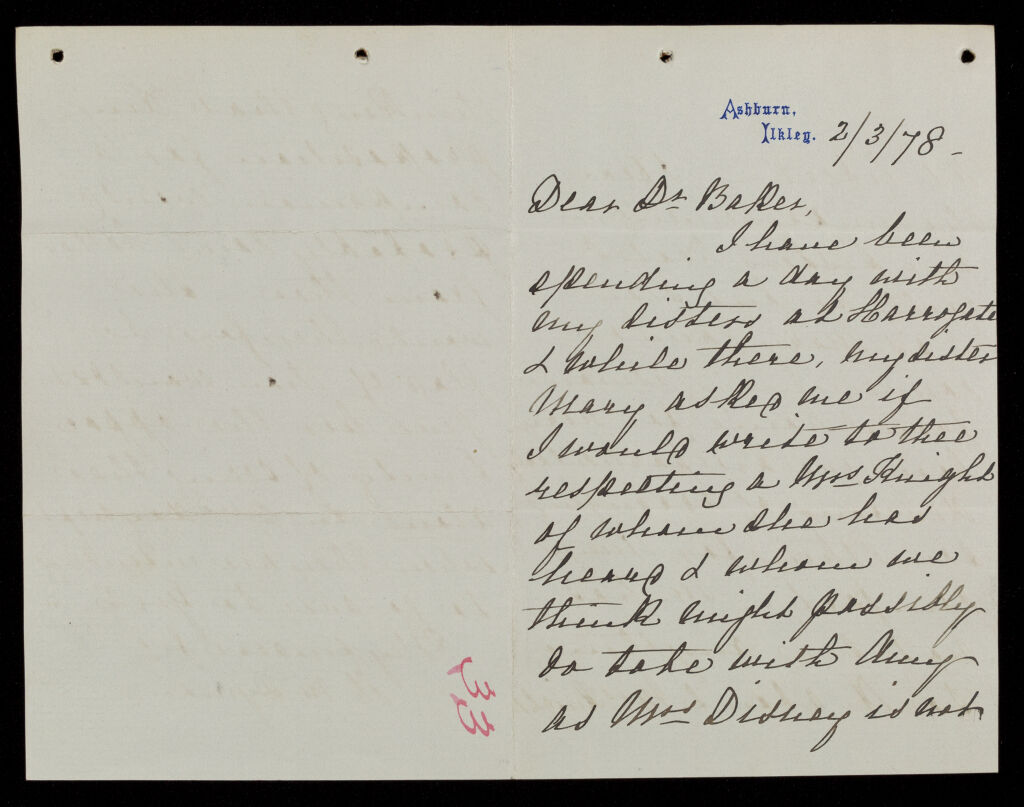 Ashburn,
Ilkley. 2/3/78-
Dear Dr Baker,
I have been
spending a day with
my sisters at Harrogate
& while there, my sister
Mary asked me if
I would write to thee
respecting a Mrs Knight
of whom she has
heard & whom we
think might possibly
do to be with Amy
as Mrs Disney is not
33